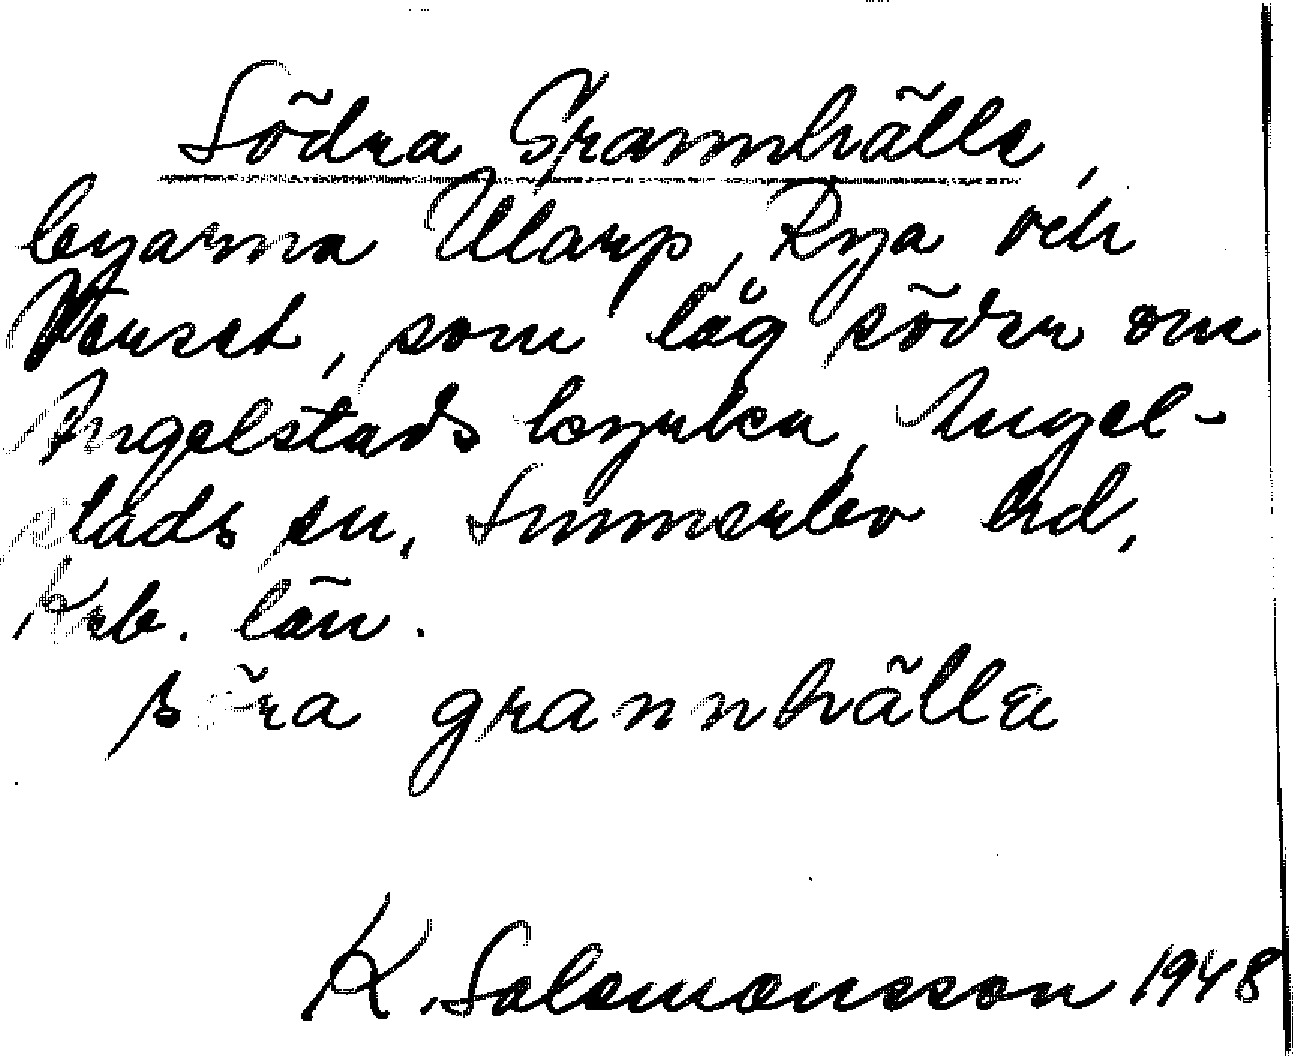 Södra Grannhälle,
byarna Ularp, Rya och
Horset, som låg söder om
Angelstads kyrka, Angel-
stads sn, Sunnerbo hd,
Krb. län.
söra grannhälla
K. Salomonsson 1948